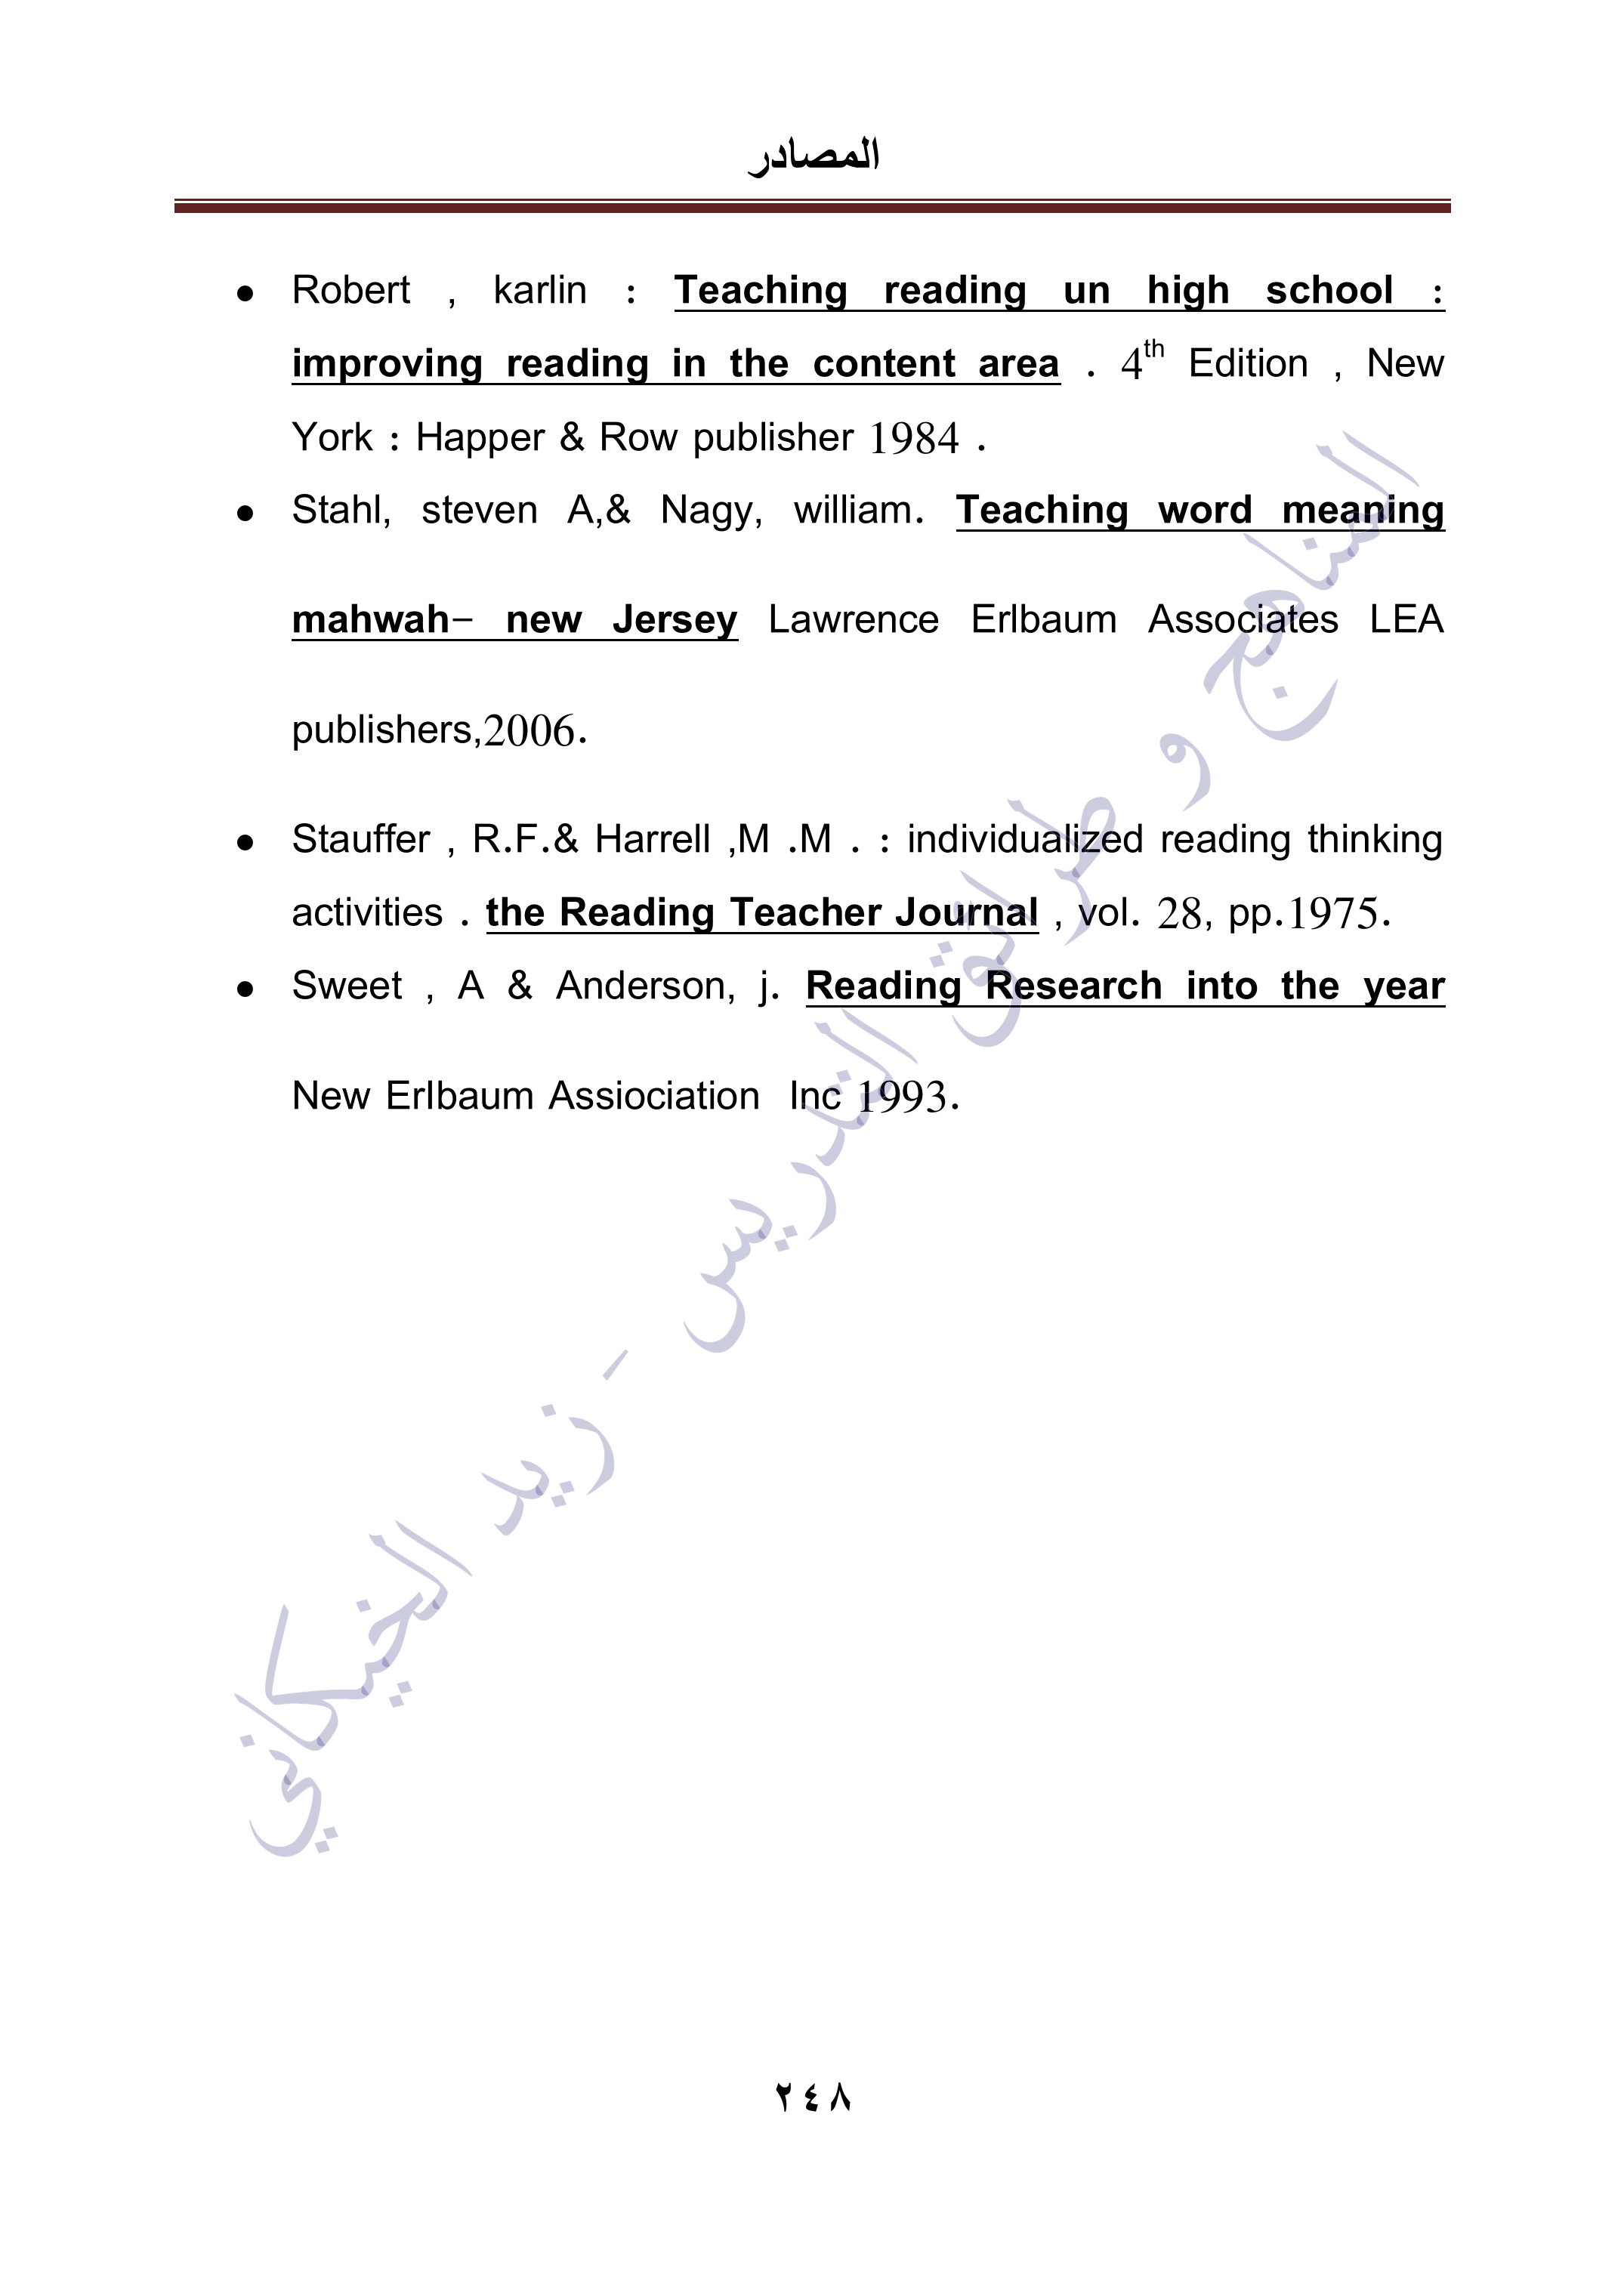 المصادر
Robert , karlin : Teaching reading un high school :
improving reading in the content area . 4th Edition , New
York : Happer & Row publisher 1984 .
Stahl, steven A,& Nagy, william. Teaching word meaning
mahwah– new Jersey Lawrence Erlbaum Associates LEA
publishers,2006.
Stauffer , R.F.& Harrell ,M .M . : individualized reading thinking
activities . the Reading Teacher Journal , vol. 28, pp.1975.
Sweet , A & Anderson, j. Reading Research into the year
New Erlbaum Assiociation Inc 1993.
المناهج و طرائق التدريس - زيد الخيكاني
٢٤٨